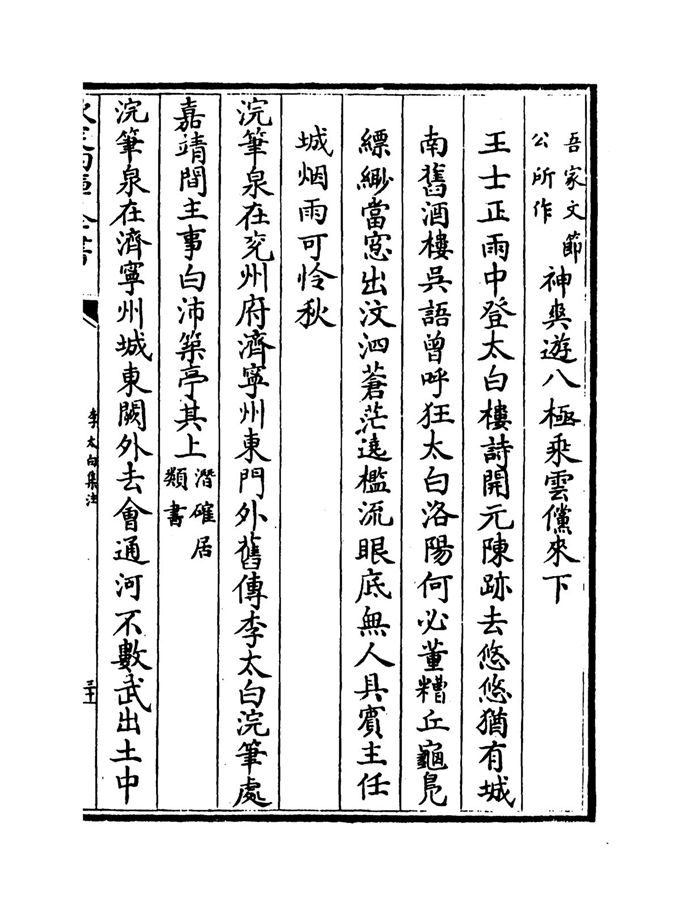 吾家文節公所作神與遊八極乘雲儻來下
王士正雨中登太白樓詩開元陳跡去悠悠猶有城
南舊酒樓吳語曾呼狂太白洛陽何必董糟丘龜鳬
縹緲當窓出汶泗蒼茫遶檻流眼底無人具賓主任
城烟雨可怜秋
浣筆泉在兖州府濟寧州東門外舊傳李太白浣筆處
嘉靖間主事白沛築亭其上潛確居類書
浣筆泉在濟寧州城東闕外去會通河不數武出土中
李太白集注